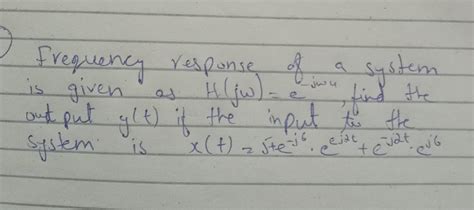 Frequency response of a system
is given as H(jω) = e^jω4, find the
output y(t) if the input to the
system is x(t) = 5+e^-j6 · e^j2t + e^-j2t · e^j6